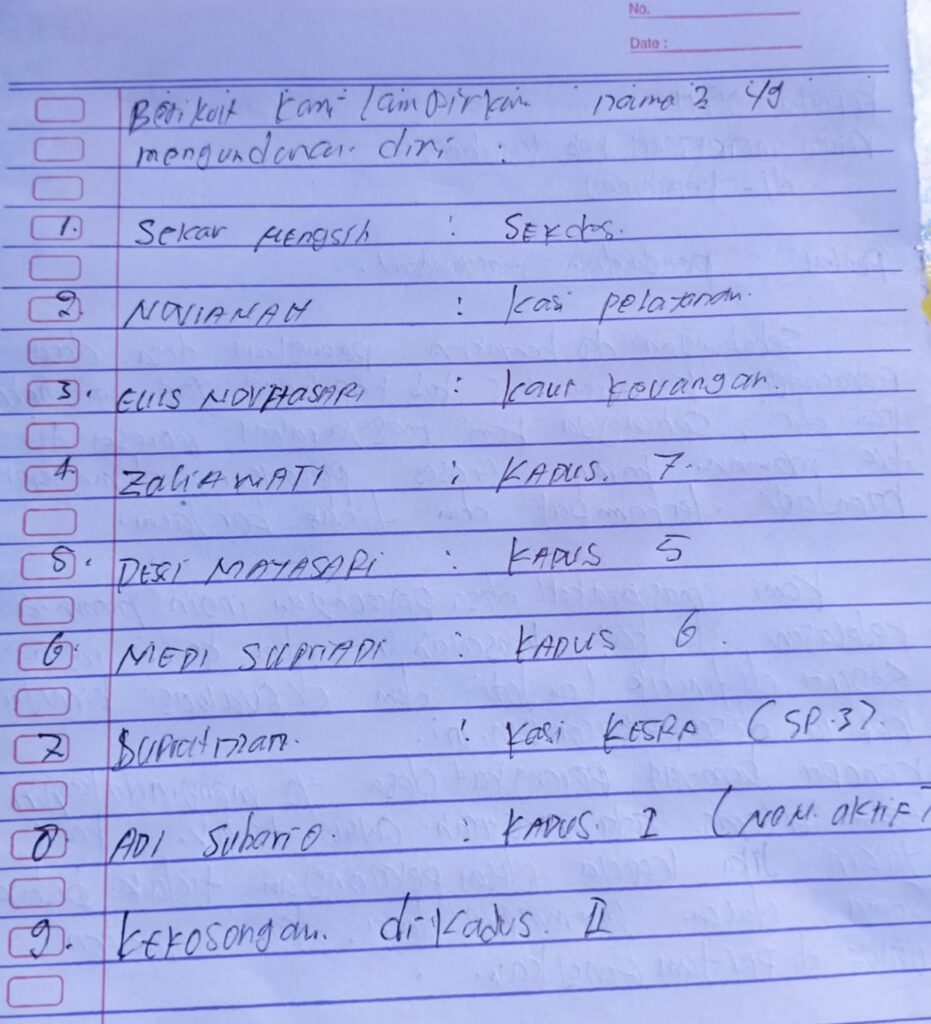 No.
Date :
Berikut kami lampirkan nama2 yg
mengundurkan diri :
1. Sekar Hengsih : SEKdes.
2. NOVIANAH : kasi pelayanan.
3. ELIS NOVITASARI : kaur keuangan.
4. ZaliAWATI : KADUS. 7.
5. DESI MAYASARI : KADUS 5
6. MEDI SUPRIADI : KADUS 6.
7 SUPRATMAN. : Kasi KESRA (SP.3).
8. ADI Subario. : KADUS. I (NON. aktif)
9. KEKOSONGAN. di Kadus. II